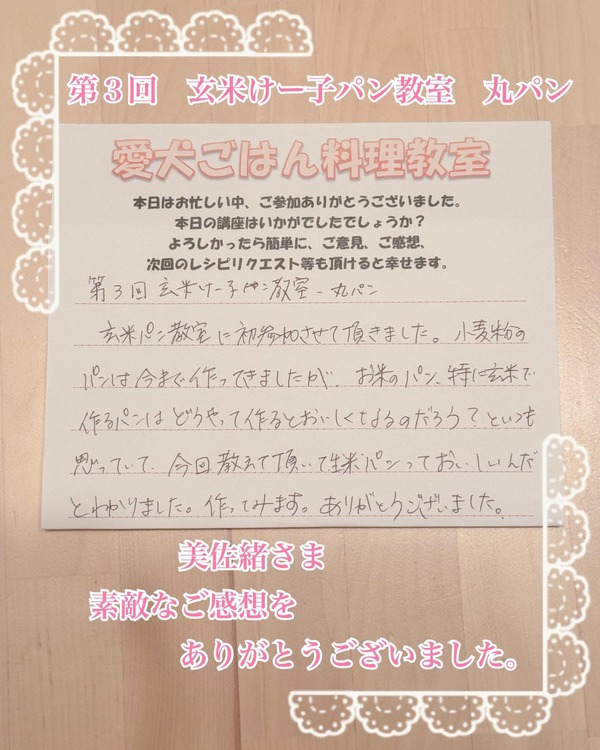 第３回　玄米けー子パン教室　丸パン
愛犬ごはん料理教室
本日はお忙しい中、ご参加ありがとうございました。
本日の講座はいかがでしたでしょうか？
よろしかったら簡単に、ご意見、ご感想、
次回のレシピリクエスト等も頂けると幸せます。
第3回 玄米けー子パン教室 - 丸パン
玄米パン教室に初参加させて頂きました。小麦粉の
パンは今まで作ってきましたが、お米のパン、特に玄米で
作るパンはどうやって作るとおいしくなるのだろう？といつも
思っていて、今回教えて頂いて生米パンっておいしいんだ
とわかりました。作ってみます。ありがとうございました。
美佐緒さま
素敵なご感想を
ありがとうございました。